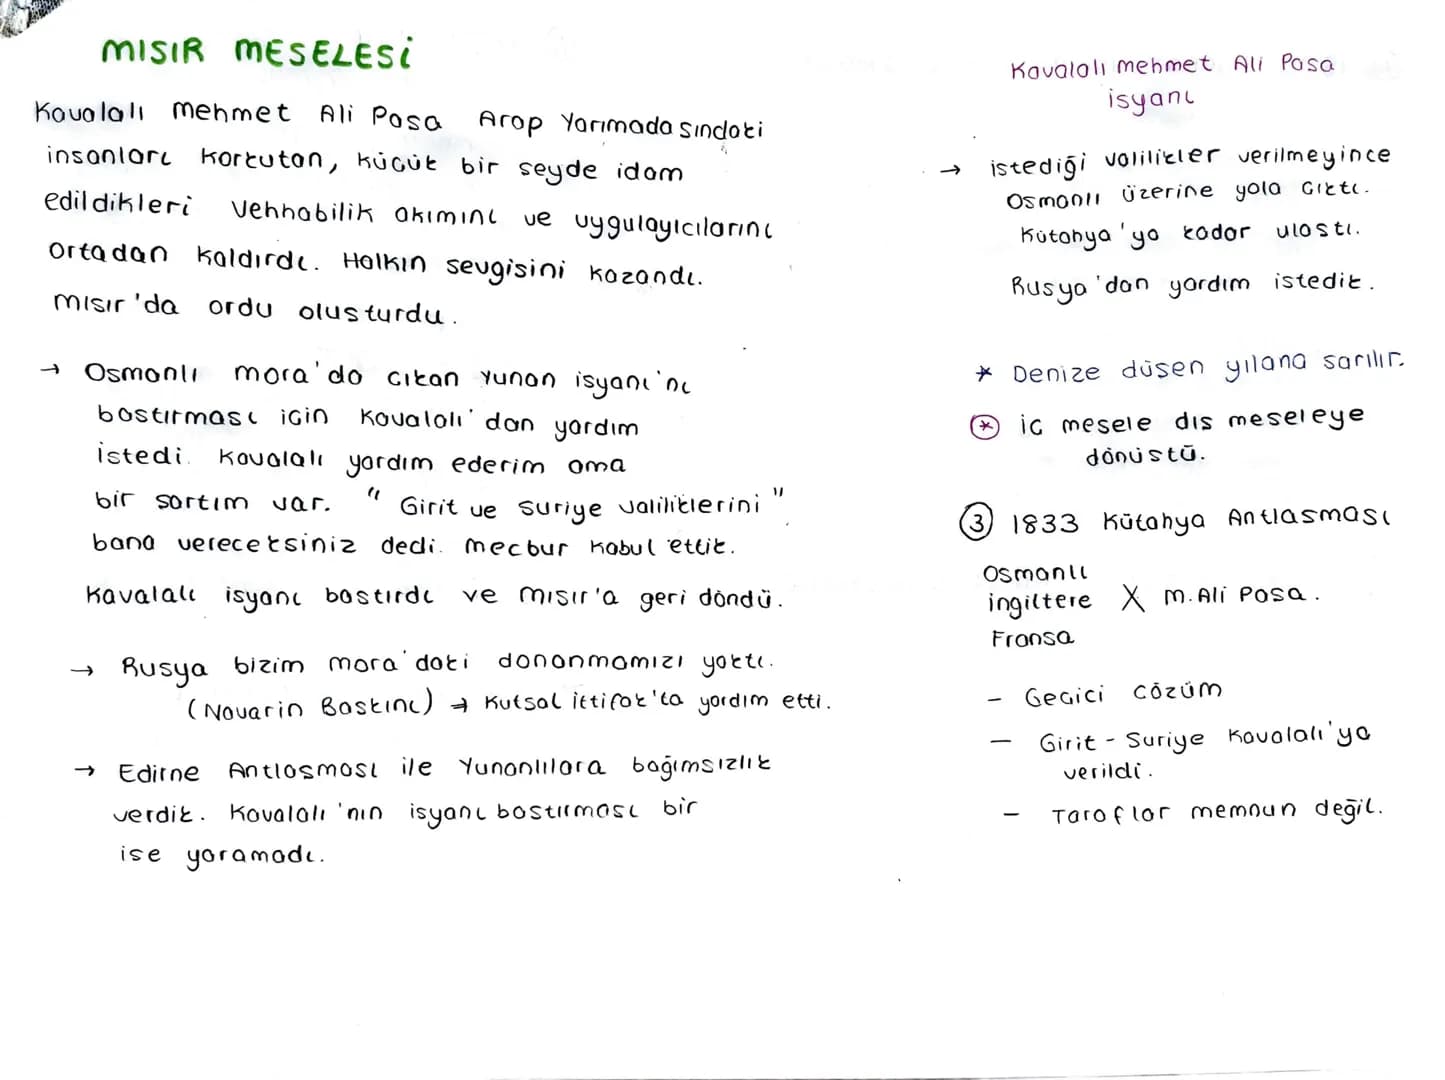 MISIR MESELESİ
Kavalalı Mehmet Ali Pasa Arap Yarımadasındaki
insanları korkutan, küçük bir seyde idam
edildikleri Vehhabilik akımını ve uygulayıcılarını
ortadan kaldırdı. Halkın sevgisini kazandı.
Mısır'da ordu olusturdu.
→ Osmanlı mora'da cıkan Yunan isyanı'nı
bastırması icin Kavalalı'dan yardım
istedi. Kavalalı yardım ederim ama
bir sartım var. " Girit ve Suriye valiliklerini "
bana vereceksiniz dedi. mecbur kabul ettik.
Kavalalı isyanı bastırdı ve mısır'a geri döndü.
→ Rusya bizim mora'daki donanmamızı yaktı.
(Navarin Baskını) → Kutsal ittifak'ta yardım etti.
→ Edirne Antlasması ile Yunanlılara bağımsızlık
verdik. Kavalalı'nın isyanı bastırması bir
ise yaramadı.
Kavalalı mehmet Ali Pasa
isyanı
→ istediği valilikler verilmeyince
Osmanlı üzerine yola cıktı.
Kütahya'ya kadar ulastı.
Rusya'dan yardım istedik.
* Denize düsen yılana sarılır.
* ic mesele dıs meseleye
dönüstü.
3 1833 Kütahya Antlasması
Osmanlı
ingiltere X m. Ali Pasa.
Fransa
- Gecici cözüm
- Girit - Suriye Kavalalı'ya
verildi.
- Taraflar memnun değil.